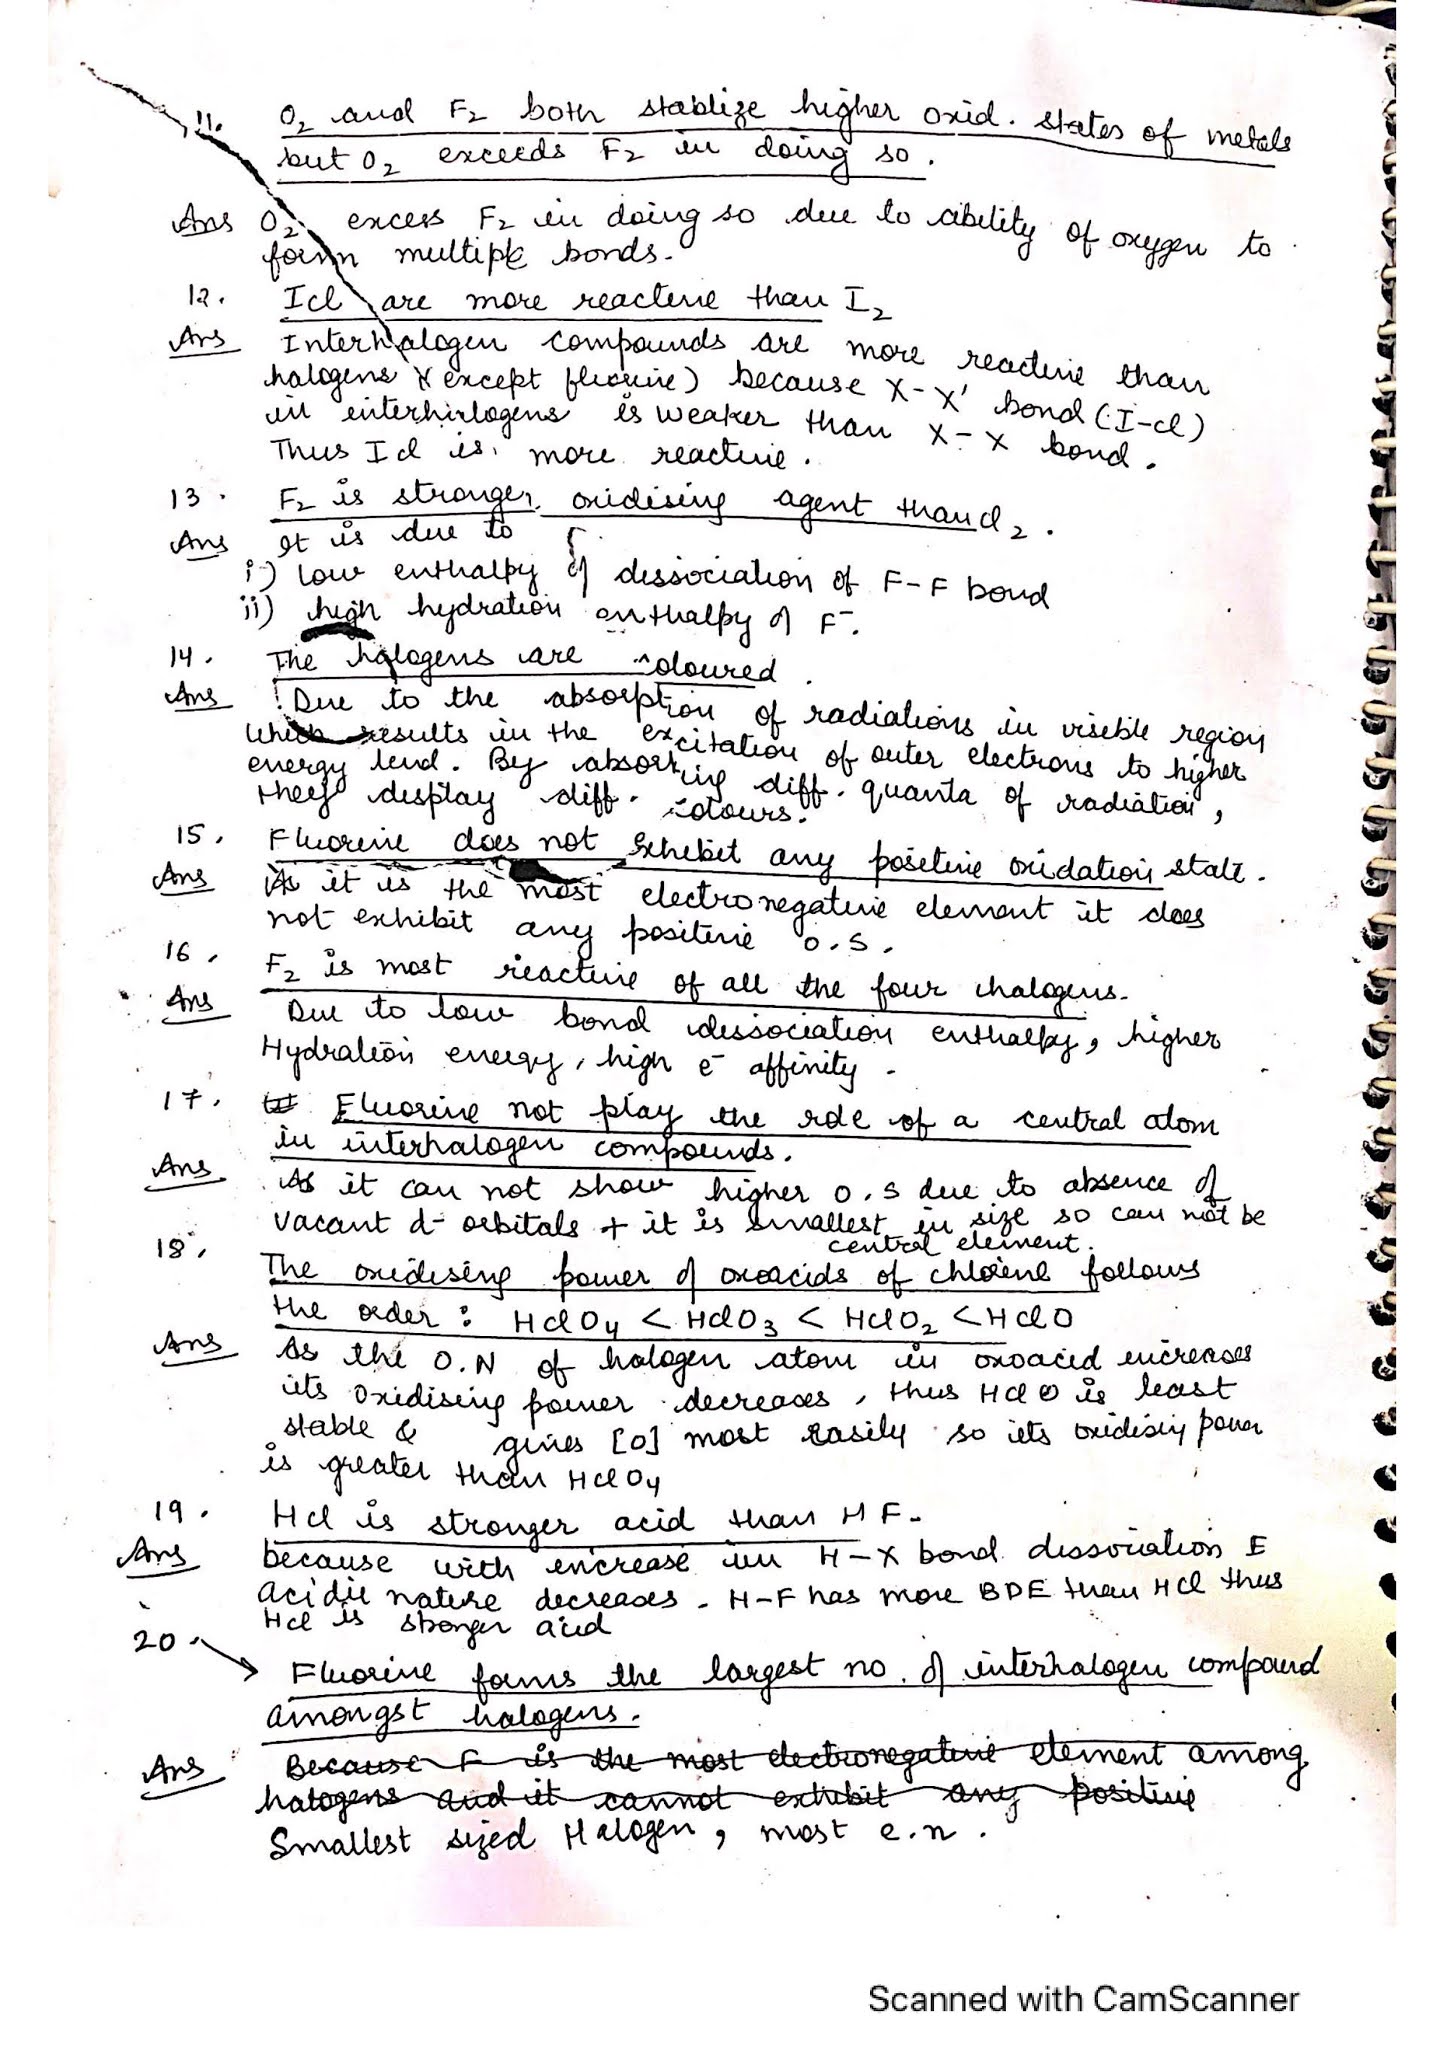 11. O2 and F2 both stablize higher oxid. states of metals
but O2 exceeds F2 in doing so.
Ans O2 excess F2 in doing so due to ability of oxygen to
form multiple bonds.
12. Icl are more reactive than I2
Ans Interhalogen compounds are more reactive than
halogens (except fluorine) because X-X' bond (I-cl)
in interhirlogens is weaker than X-X bond.
Thus Icl is more reactive.
13. F2 is stronger oxidising agent than cl2.
Ans It is due to
i) low enthalpy of dissociation of F-F bond
ii) high hydration enthalpy of F-.
14. The halogens are coloured.
Ans Due to the absorption of radiations in visible region
which results in the excitation of outer electrons to higher
energy level. By absorbing diff. quanta of radiation,
they display diff. colours.
15. Fluorine does not exhibit any positive oxidation state.
Ans As it is the most electronegative element it does
not exhibit any positive o.s.
16. F2 is most reactive of all the four halogens.
Ans Due to low bond dissociation enthalpy, higher
Hydration energy, high e- affinity.
17. Fluorine not play the role of a central atom
in interhalogen compounds.
Ans As it can not show higher o.s due to absence of
vacant d-orbitals + it is smallest in size so can not be
central element.
18. The oxidising power of oxoacids of chlorine follows
the order: HclO4 < HclO3 < HclO2 < HclO
Ans As the O.N of halogen atom in oxoacid increases
its oxidising power decreases, thus HclO is least
stable & gives [O] most easily so its oxidising power
is greater than HclO4
19. Hcl is stronger acid than HF.
Ans because with increase in H-X bond dissociation E
acidic nature decreases. H-F has more BDE than Hcl thus
Hcl is stronger acid
20. Fluorine forms the largest no. of interhalogen compound
amongst halogens.
Ans Because F is the most electronegative element among
halogens and it cannot exhibit any positive
Smallest sized Halogen, most e.n.
Scanned with CamScanner